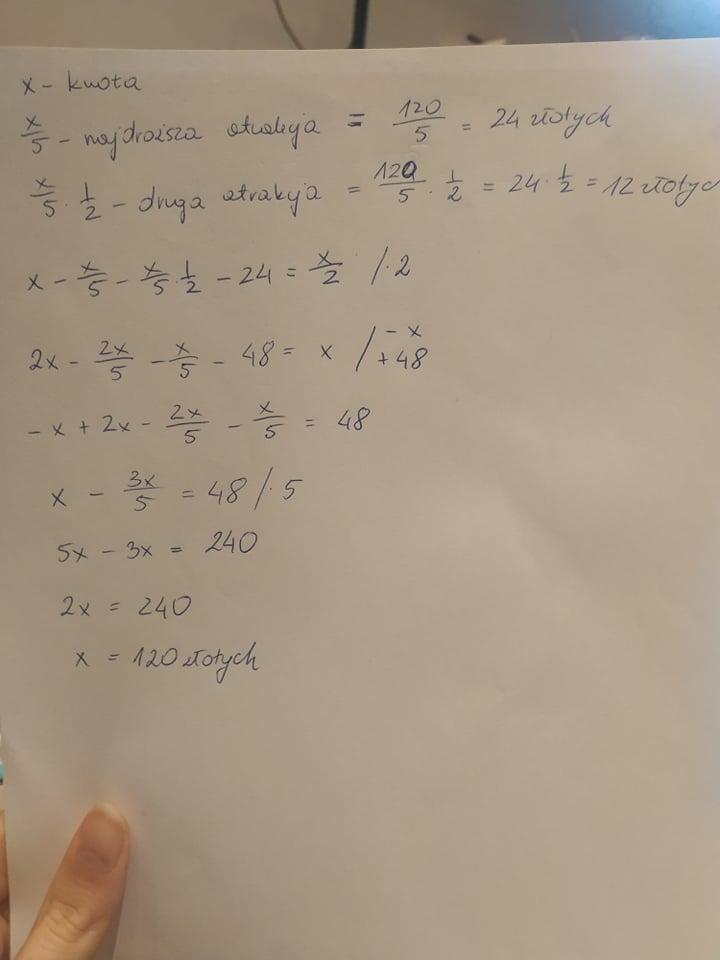 x - kwota
x/5 - najdroższa atrakcja = 120/5 = 24 złotych
x/5 · 1/2 - druga atrakcja = 120/5 · 1/2 = 24 · 1/2 = 12 złotyc
x - x/5 - x/5 · 1/2 - 24 = x/2 /·2
2x - 2x/5 - x/5 - 48 = x / -x +48
-x + 2x - 2x/5 - x/5 = 48
x - 3x/5 = 48 /·5
5x - 3x = 240
2x = 240
x = 120 złotych